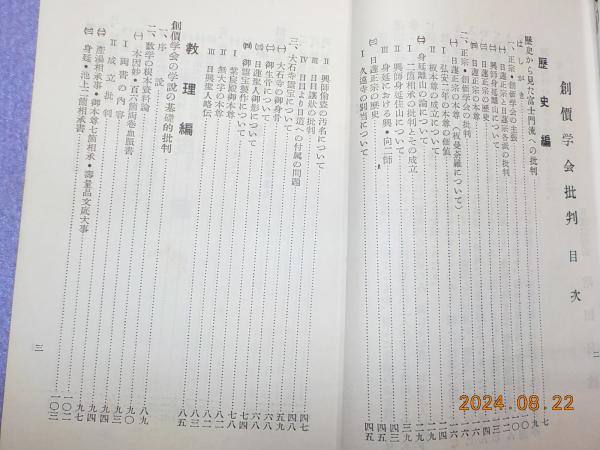 創價学会批判 目次
歴史編
歴史から見た富士門流への批判
はしがき
一、正宗・創価学会の主張
㈠ 日蓮正宗と日蓮正宗各派の批判
㈡ 興師身延離山について
㈢ 日蓮正宗の歴史
㈣ 日蓮正宗の本尊
二、正宗・創価学会の批判
㈠ 日蓮正宗の本尊(板曼荼羅について)
Ⅰ 弘安二年の本尊の価値
Ⅱ 根本本尊の成立について
㈡ 身延離山の論について
Ⅰ 二箇相承の批判とその成立
Ⅱ 興師身延住山について
Ⅲ 身延における興・向二師
㈢ 日蓮正宗の歴史
Ⅰ 久遠寺の別当について
二
Ⅱ 興師偸盗の汚名について 四七
Ⅲ 日目譲状の批判 四七
Ⅳ 日目より日道への付属の問題 四八
三、大石寺霊宝について 五七
㈠ 大石寺の御身骨 五七
㈡ 御生骨について 六六
㈢ 日蓮聖人御影について 六八
㈣ 御霊宝製作について 七四
Ⅰ 紫宸殿御本尊 七八
Ⅱ 無大字の本尊 八二
Ⅲ 日興聖人略伝 八二
教理編
創價学会の学説の基礎的批判 八五
一、序説
二、教学の根本資料論 八九
㈠ 本因妙・百六箇両巻血脈書 九〇
Ⅰ 両書の内容 九三
Ⅱ 成立批判 九四
㈡ 産湯相承事・御本尊七箇相承・壽量品文底大事 九七
㈢ 身延・池上二箇相承書
三
2024.08.22